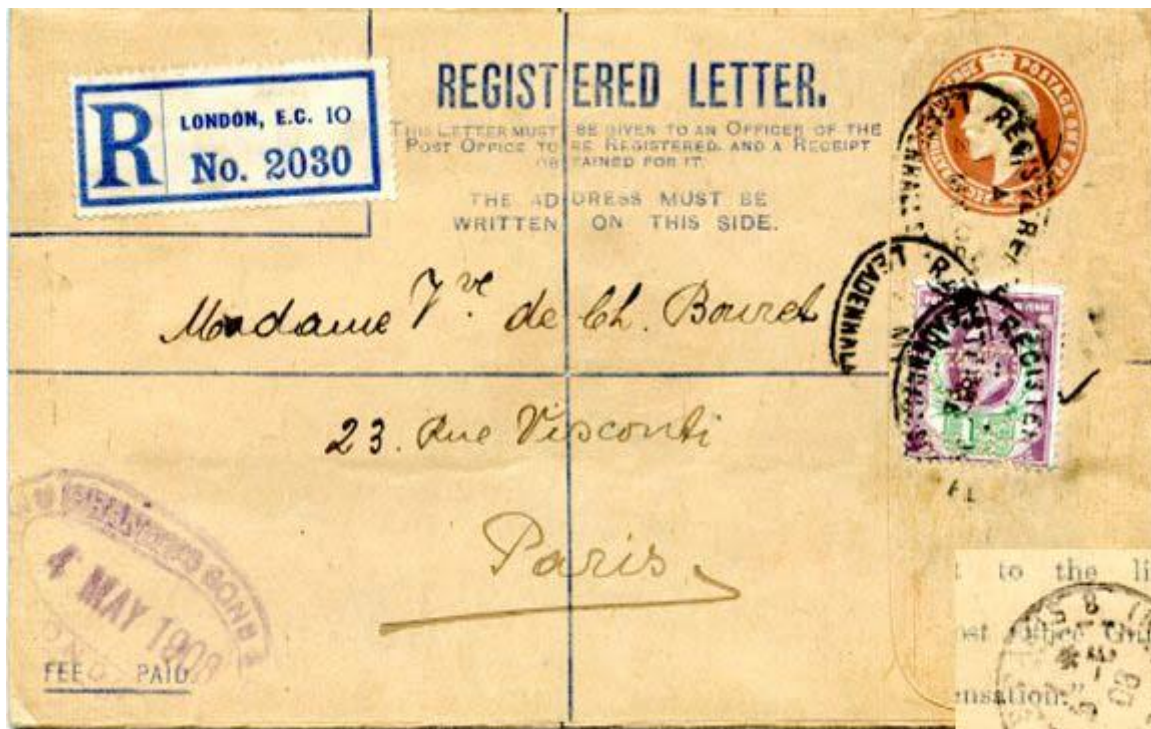 REGISTERED LETTER.
R LONDON, E.C. 10
No. 2030
THIS LETTER MUST BE GIVEN TO AN OFFICER OF THE
POST OFFICE TO BE REGISTERED, AND A RECEIPT
OBTAINED FOR IT.
THE ADDRESS MUST BE
WRITTEN ON THIS SIDE.
POSTAGE
REGISTERED
LEADENHALL
REGISTERED
Madame Vve de Ch. Bouret
23. Rue Visconti
Paris
SONS
4 MAY 1908
FEE PAID.
to the
Office